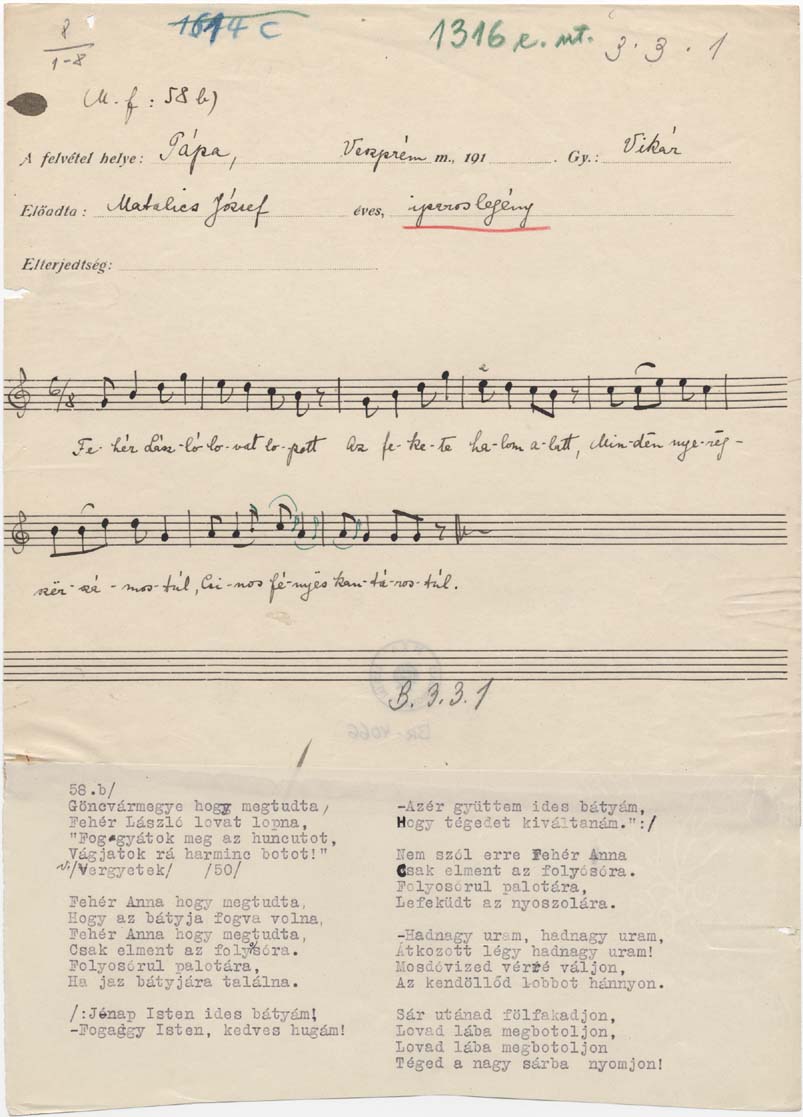 8
1-8
1614 c
1316 e. mt.
3.3.1
(M.f: 58b)
A felvétel helye: Pápa, Veszprém m., 191 . Gy.: Vikár
Előadta: Matalics József éves, iparoslegény
Elterjedtség:
6/8
Fe-hér Lász-ló lo-vat lo-pott Az fe-ke-te ha-lom a-latt, Min-dën nye-rëg-
szër-szá-mos-túl, Csi-nos fé-nyës kan-tá-ros-túl.
B.3.3.1
58.b/
Göncvármegye hogy megtudta,
Fehér László lovat lopna,
"Fog-gyátok meg az huncutot,
Vágjatok rá harminc botot!"
v./Vergyetek/ /50/
Fehér Anna hogy megtudta,
Hogy az bátyja fogva volna,
Fehér Anna hogy megtudta,
Csak elment az folyósóra.
Folyosórul palotára,
Ha jaz bátyjára találna.
/:Jénap Isten ides bátyám!
-Fogaggy Isten, kedves hugám!
-Azér gyüttem ides bátyám,
Hogy tégedet kiváltanám.":/
Nem szól erre Fehér Anna
Csak elment az folyósóra.
Folyosórul palotára,
Lefeküdt az nyoszolára.
-Hadnagy uram, hadnagy uram,
Átkozott légy hadnagy uram!
Mosdóvized vérré váljon,
Az kendöllőd lobbot hánnyon.
Sár utánad fölfakadjon,
Lovad lába megbotoljon,
Lovad lába megbotoljon
Téged a nagy sárba nyomjon!